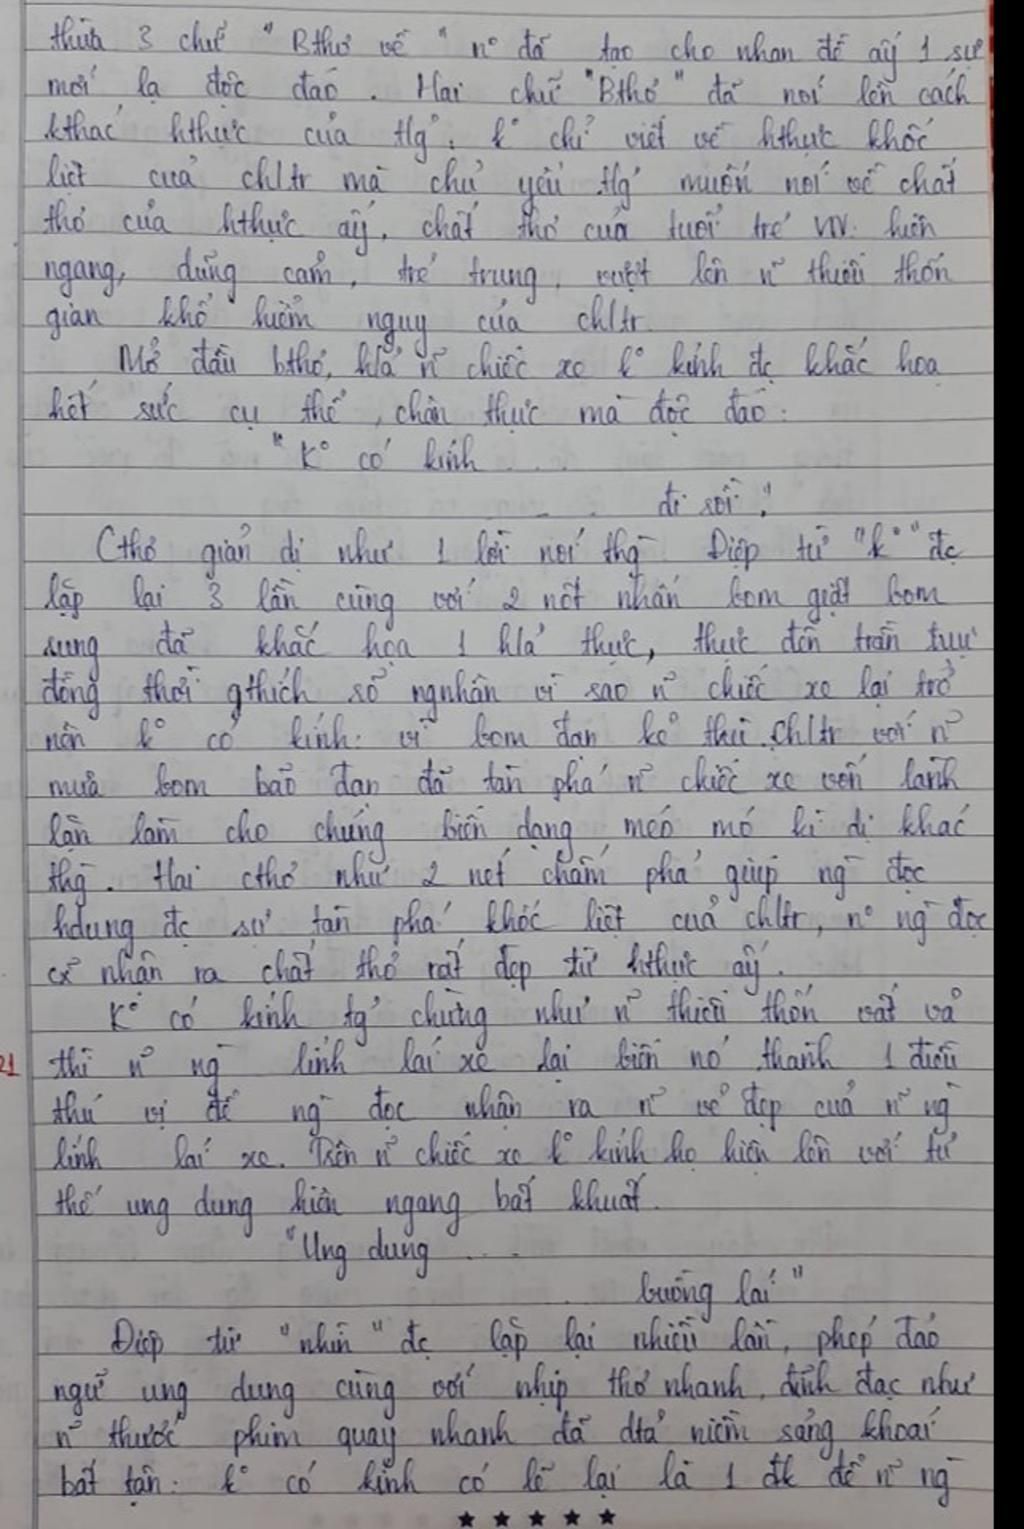 thừa 3 chữ "Bthơ về" nº đã tạo cho nhan đề ấy 1 sự
mới lạ độc đáo. Hai chữ "Bthơ" đã nói lên cách
kthác hthực của tg. kº chỉ viết về hthực khốc
liệt của ch/tr mà chủ yếu tg muốn nói về chất
thơ của hthực ấy, chất thơ của tuổi trẻ VN: hiên
ngang, dũng cảm, trẻ trung, vượt lên n~ thiếu thốn
gian khổ hiểm nguy của ch/tr.
Mở đầu bthơ, h/ả n~ chiếc xe kº kính đc khắc hoạ
hết sức cụ thể, chân thực mà độc đáo:
"Kº có kính . . .
. . . đi rồi"
Cthơ giản dị như 1 lời nói thg. Điệp từ "kº" đc
lặp lại 3 lần cùng với 2 nốt nhấn bom giật bom
rung đã khắc họa 1 h/ả thực, thực đến trần trụi
đồng thời gthích số ngnhân vì sao n~ chiếc xe lại trở
nên kº có kính: vì bom đạn kẻ thù. Ch/tr với n~
mưa bom bão đạn đã tàn phá n~ chiếc xe vốn lành
lặn làm cho chúng biến dạng méo mó kì dị khác
thg. Hai cthơ như 2 nét chấm phá giúp ng đọc
hdung đc sự tàn phá khốc liệt của ch/tr, nº ng đọc
cx nhận ra chất thơ rất đẹp từ hthực ấy.
Kº có kính tg chừng như n~ thiếu thốn vất vả
21 thì n~ ng lính lái xe lại biến nó thành 1 điều
thú vị để ng đọc nhận ra n~ vẻ đẹp của n~ ng
lính lái xe. Trên n~ chiếc xe kº kính họ hiện lên với tư
thế ung dung hiên ngang bất khuất.
"Ung dung . . .
. . . buồng lái"
Điệp từ "nhìn" đc lặp lại nhiều lần, phép đảo
ngữ ung dung cùng với nhịp thơ nhanh, đĩnh đạc như
n~ thước phim quay nhanh đã dtả niềm sảng khoái
bất tận: kº có kính có lẽ lại là 1 đk để n~ ng